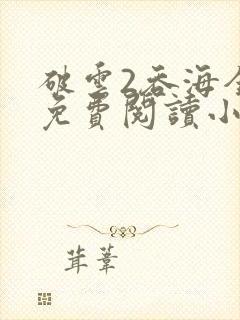 破雲2吞海全
免費閱讀小
茸葦